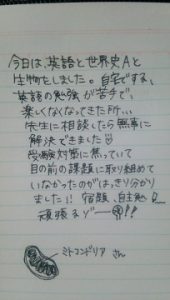 今日は、英語と世界史Aと
生物をしました。自宅でする、
英語の勉強が苦手で、
楽しくなくなってきた所…
先生に相談したら無事に
解決できました
受験対策に焦っていて
目の前の課題に取り組めて
いなかったのがはっきり分かり
ました!! 宿題、自主勉
頑張るゾー!!
ミトコンドリア さん